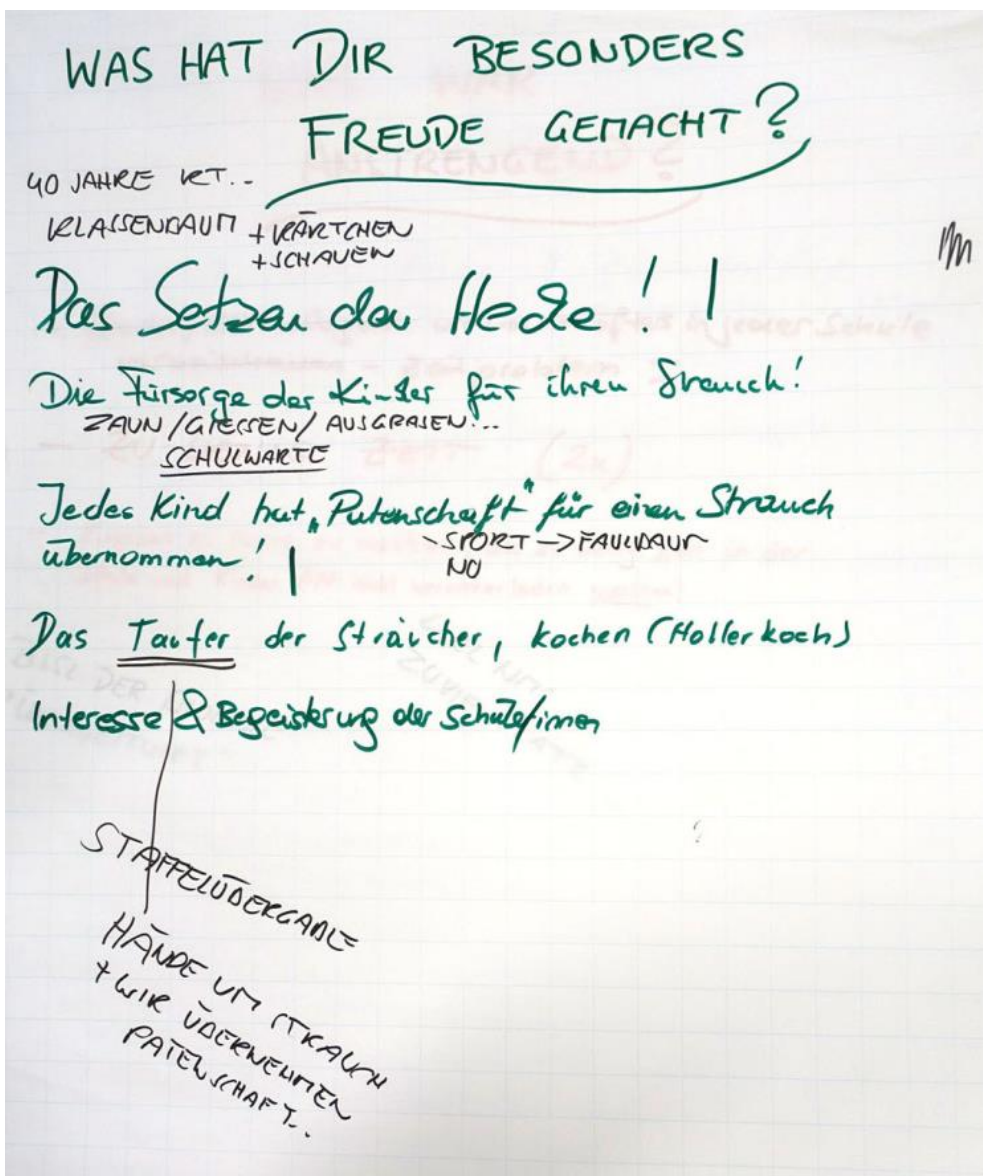 WAS HAT DIR BESONDERS
FREUDE GEMACHT?
40 JAHRE
KLASSENBAUM + KÄRTCHEN
+ SCHAUEN
Das Setzen der Hecke! !
Die Fürsorge der Kinder für ihren Strauch!
ZAUN/GIESSEN/AUSGRASEN...
SCHULWARTE
Jedes Kind hat "Patenschaft" für einen Strauch
- SPORT -> FAULBAUM
NO
übernommen! |
Das Taufen der Sträucher, kochen (Hollerkoch)
Interesse & Begeisterung der Schüler/innen
STAFFELÜBERGABE
HÄNDE UM STRAUCH
+ WIR ÜBERNEHMEN
PATENSCHAFT..